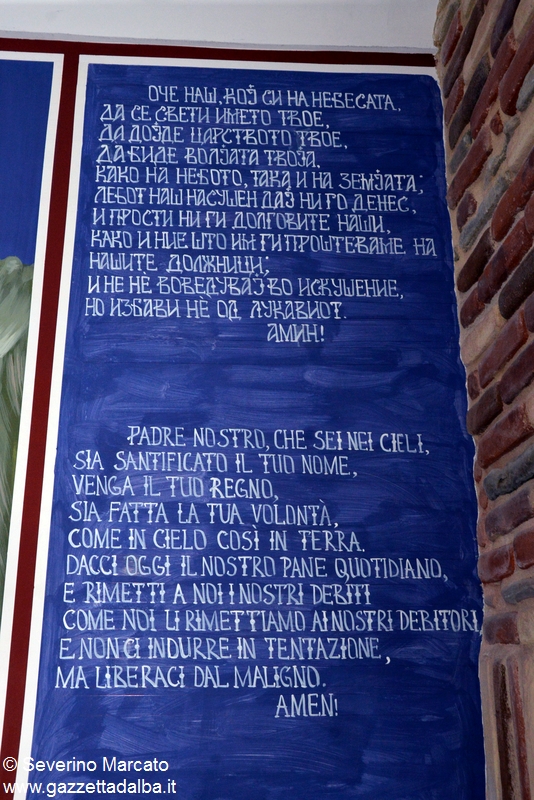 ОЧЕ НАШ, КОЈ СИ НА НЕБЕСАТА.
ДА СЕ СВЕТИ ИМЕТО ТВОЕ,
ДА ДОЈДЕ ЦАРСТВОТО ТВОЕ,
ДА БИДЕ ВОЛЈАТА ТВОЈА.
КАКО НА НЕБОТО, ТАКА И НА ЗЕМЈАТА;
ЛЕБОТ НАШ НАСУШЕН ДАЈ НИ ГО ДЕНЕС,
И ПРОСТИ НИ ГИ ДОЛГОВИТЕ НАШИ,
КАКО И НИЕ ШТО ИМ ГИ ПРОШТЕВАМЕ НА
НАШИТЕ ДОЛЖНИЦИ;
И НЕ НЀ ВОВЕДУВАЈ ВО ИСКУШЕНИЕ,
НО ИЗБАВИ НЀ ОД ЛУКАВИОТ.
АМИН!
PADRE NOSTRO, CHE SEI NEI CIELI,
SIA SANTIFICATO IL TUO NOME,
VENGA IL TUO REGNO,
SIA FATTA LA TUA VOLONTÀ,
COME IN CIELO COSÌ IN TERRA.
DACCI OGGI IL NOSTRO PANE QUOTIDIANO,
E RIMETTI A NOI I NOSTRI DEBITI
COME NOI LI RIMETTIAMO AI NOSTRI DEBITORI,
E NON CI INDURRE IN TENTAZIONE,
MA LIBERACI DAL MALIGNO.
AMEN!
© Severino Marcato
www.gazzettadalba.it